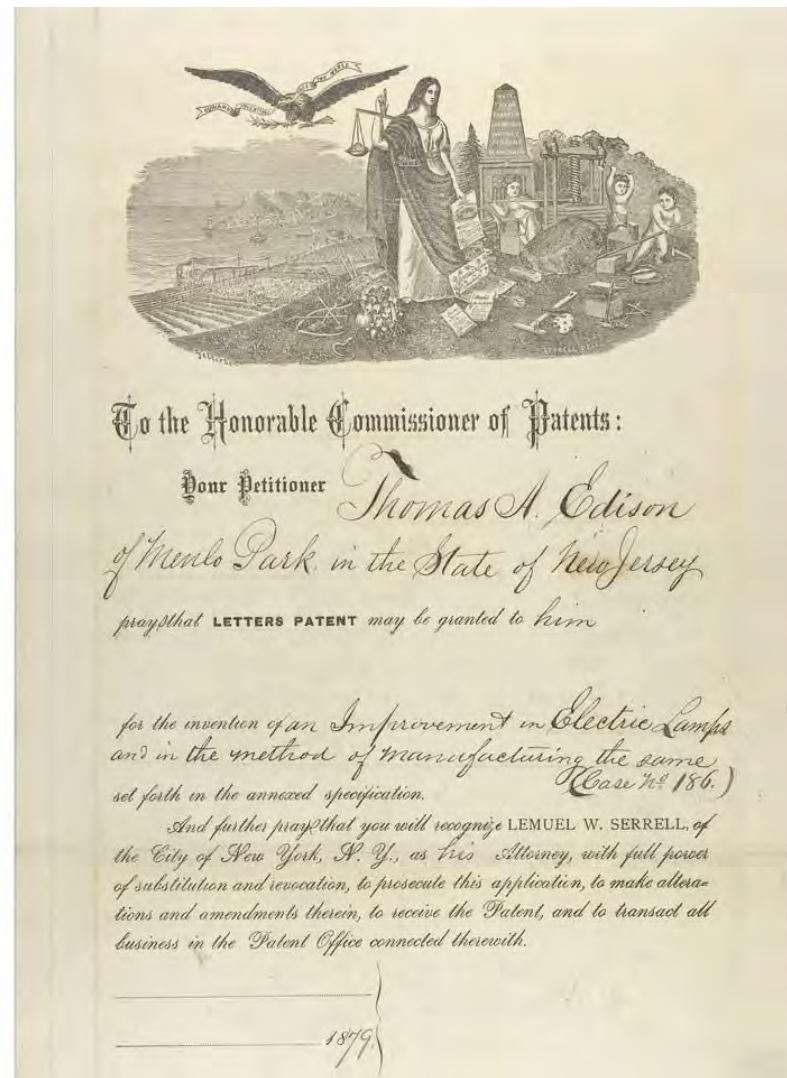 OF THE WORLD
To the Honorable Commissioner of Patents:
Your Petitioner Thomas A. Edison
of Menlo Park in the State of New Jersey
prays that LETTERS PATENT may be granted to him
for the invention of an Improvement in Electric Lamps
and in the method of manufacturing the same
(Case No 186.)
set forth in the annexed specification.
And further prays that you will recognize LEMUEL W. SERRELL, of
the City of New York, N. Y., as his Attorney, with full power
of substitution and revocation, to prosecute this application, to make altera=
tions and amendments therein, to receive the Patent, and to transact all
business in the Patent Office connected therewith.
1879.